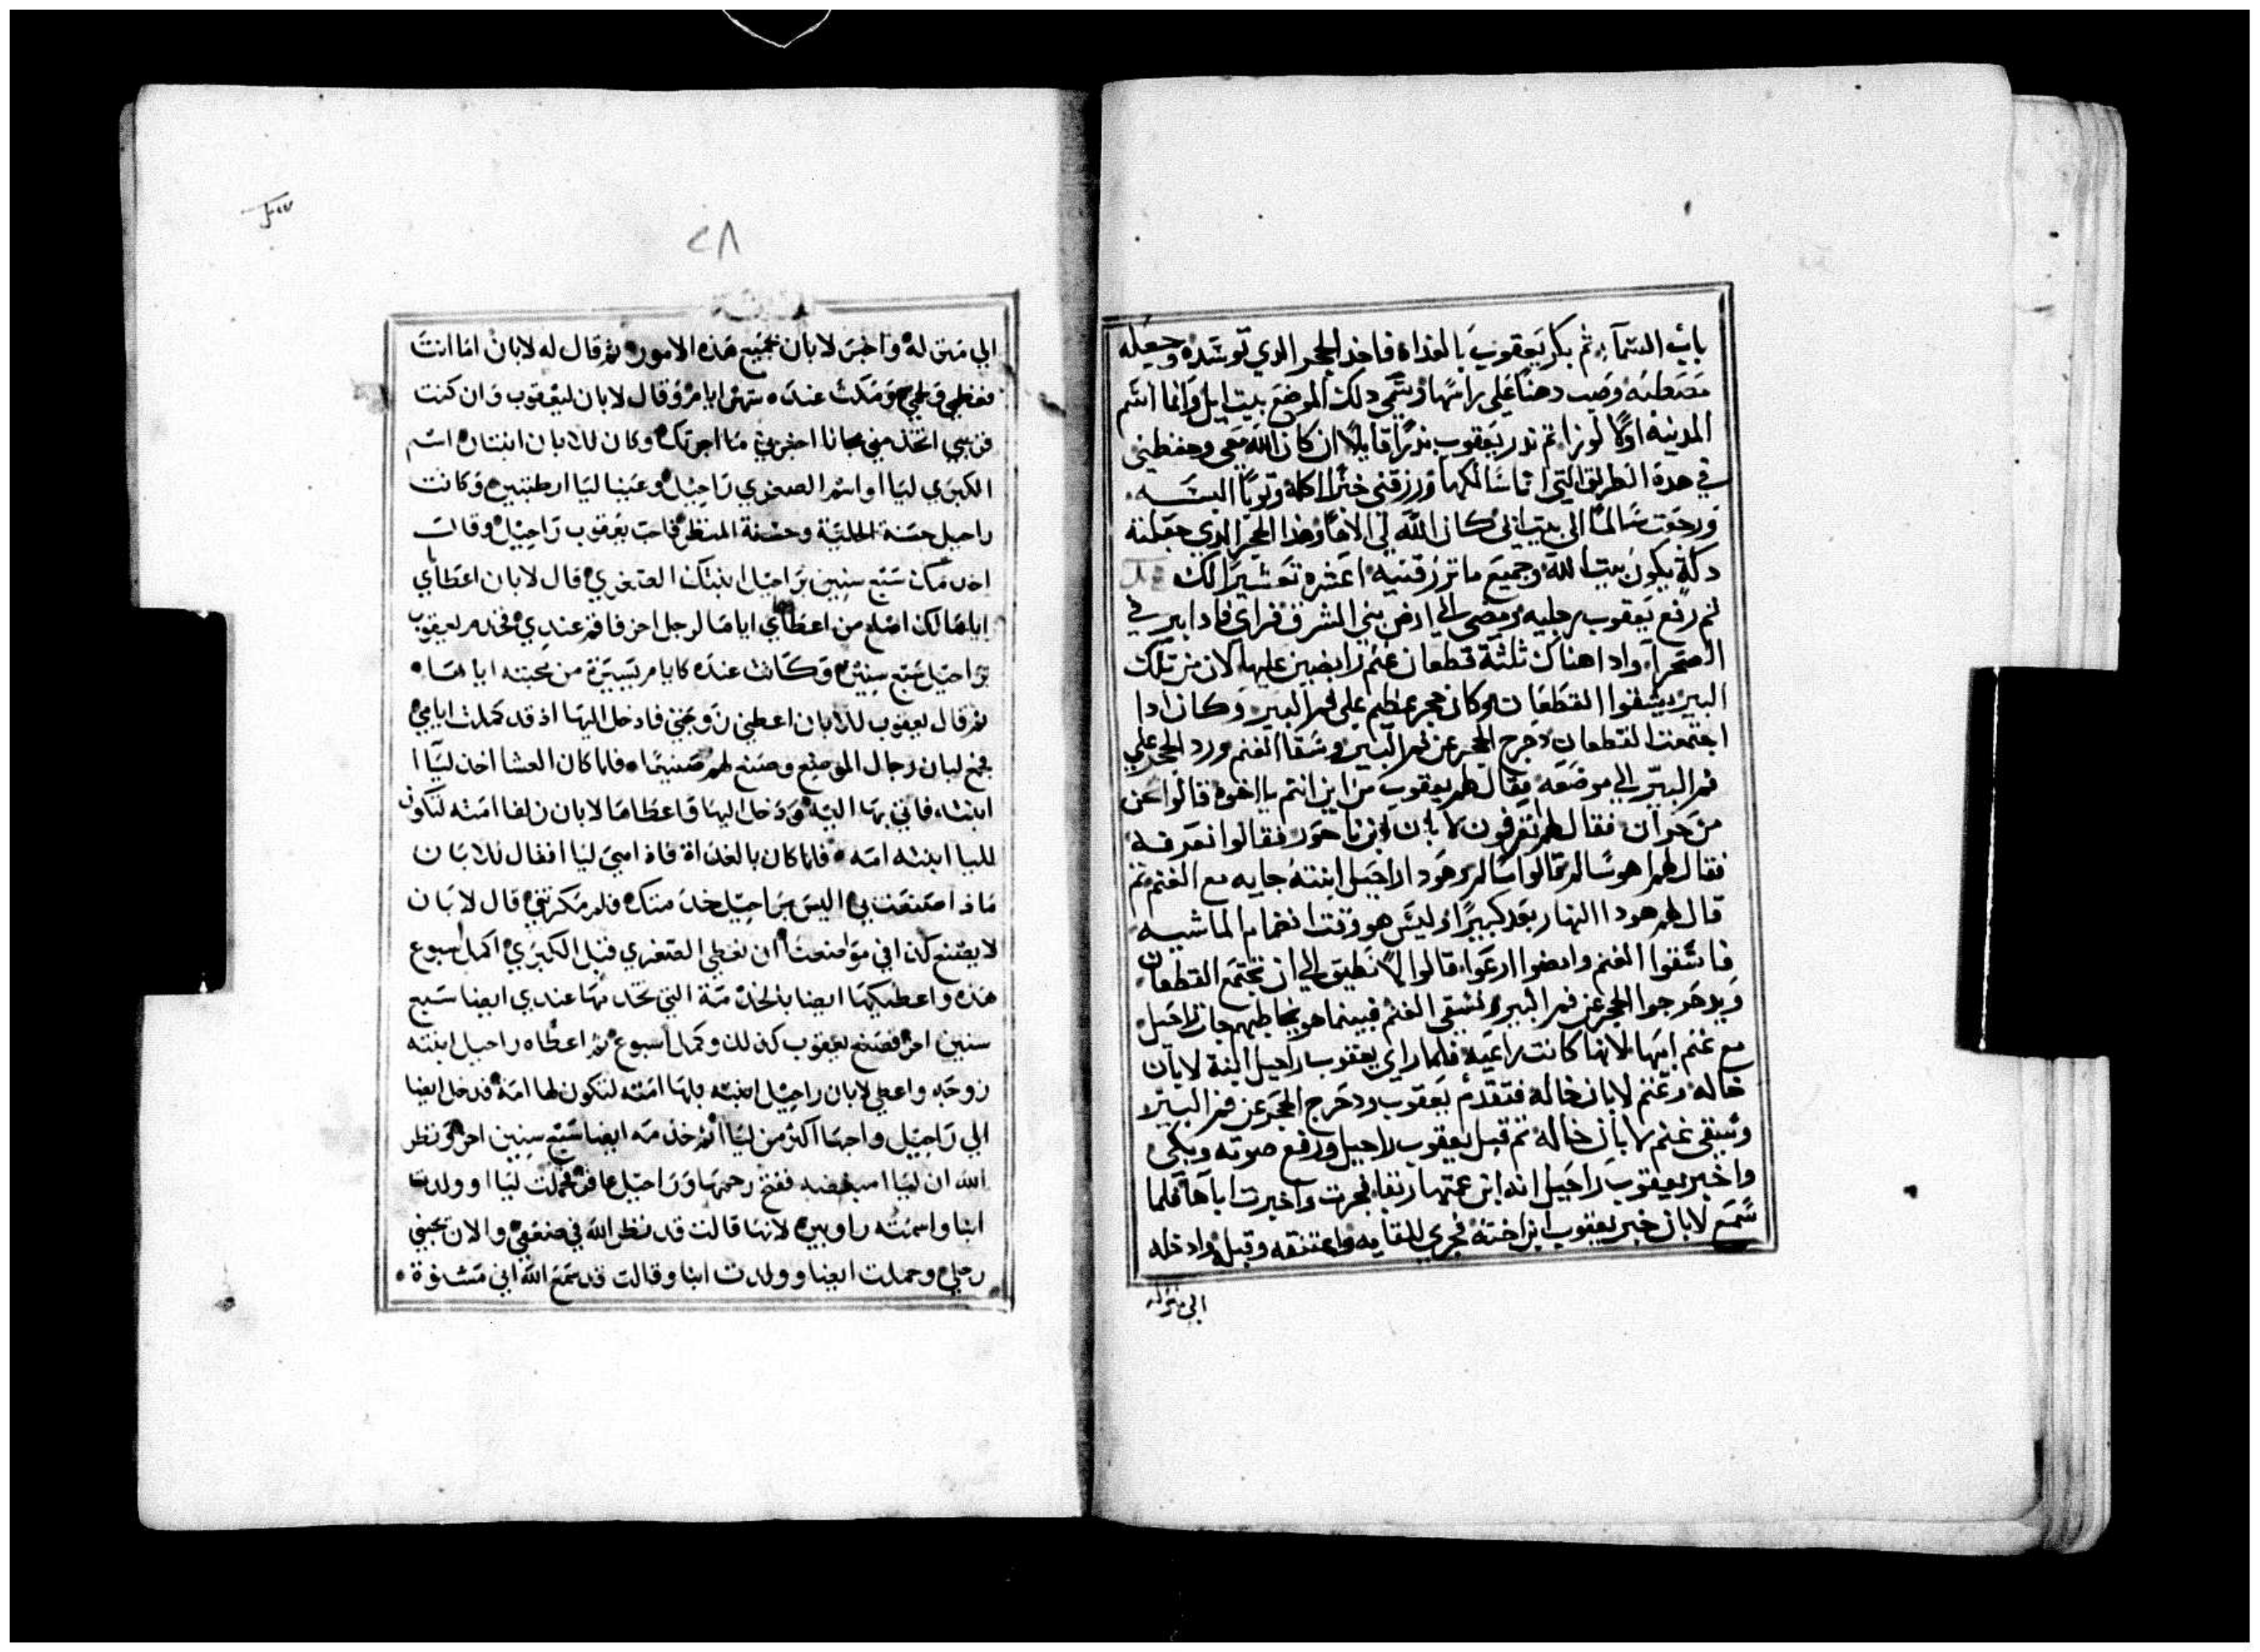 باب السمآء ثم بكر يعقوب بالغداه فاخد الحجر الدي توسده وجعله
مصطبه وصب دهنا على راسها وسمي دلك الموضع بيت ايل وانما اسم
المدينه اولا لوزا ثم ندر يعقوب ندرا قايلا ان كان الله معي وحفظني
في هده الطريق التي انا سالكها ورزقني خبزا اكله وتوبا البسه
ورجعت سالما الى بيت ابي كان الله لي الاها وهدا الحجر الدي جعلته
دكة يكون بيت الله وجميع ما ترزقنيه اعشره تعشيرا لك
ثم رفع يعقوب رجليه ومضى الي ارض بني المشرق فراي فادا بير في
الصحرآء وادا هناك ثلثة قطعان غنم رابضين عليها لان من تلك
البير يسقوا القطعان وكان حجر عظيم على فم البير وكان ادا
اجتمعت القطعان دحرج الحجر عن فم البير وسقا الغنم ورد الحجر على
فم البير الي موضعه فقال لهم يعقوب من اين انتم يا اخوة قالوا نحن
من حران فقال لهم تعرفون لابان ابن ناحور فقالوا نعرفه
فقال لهم اهو سالم قالوا سالم وهودا راحيل ابنته جايه مع الغنم ثم
قال لهم هودا النهار بعد كبيرا وليس هو وقت انضمام الماشيه
فاسقوا الغنم وامضوا ارعوا قالوا لا نطيق الي ان تجتمع القطعان
ويدحرجوا الحجر عن فم البير ونسقي الغنم فبينما هو يخاطبهم جات راحيل
مع غنم ابيها لانها كانت راعيه فلما راي يعقوب راحيل ابنة لابان
خاله وغنم لابان خاله فتقدم يعقوب ودحرج الحجر عن فم البير
وسقى غنم لابان خاله ثم قبل يعقوب راحيل ورفع صوته وبكى
واخبر يعقوب راحيل انه ابن عمتها رفقا فجرت واخبرت اباها فلما
سمع لابان خبر يعقوب ابن اخته فجري للقايه واعتنقه وقبله وادخله
الى منزله
٢٨
الي منزله واخبر لابان بجميع هذه الامور ثم قال له لابان اما انت
فعظمي ولحمي ومكث عنده شهر ايام وقال لابان ليعقوب وان كنت
قريبي اتخدمني مجانا اخبرني ما اجرتك وكان للابان ابنتان اسم
الكبرى ليا واسم الصغرى راحيل وعينا ليا ارطبتين وكانت
راحيل حسنة الحلية وحسنة المنظر فاحب يعقوب راحيل وقال
اخدمك سبع سنين براحيل ابنتك الصغرى قال لابان اعطاي
اياها لك اصلح من اعطاي اياها لرجل اخر فاقم عندي فخدم يعقوب
براحيل سبع سنين وكانت عنده كايام يسيرة من محبته اياها
ثم قال يعقوب للابان اعطني زوجتي فادخل اليها اذ قد كملت ايامي
فجمع لبان رجال الموضع وصنع لهم صنيعا فلما كان العشا اخذ ليا
ابنته فاتي بها اليه ودخل اليها فاعطاها لابان زلفا امته لتكون
لليا ابنته امه فلما كان بالغداة فاذا هي ليا فقال للابان
ماذا صنعت بي اليس براحيل خدمتك فلم مكرتني قال لابان
لا يصنع كذا في مواضعنا ان نعطي الصغرى قبل الكبرى اكمل اسبوع
هذه واعطيكها ايضا بالخدمة التي تخدمها عندي ايضا سبع
سنين اخر فصنع يعقوب كذلك وكمل اسبوع ثم اعطاه راحيل ابنته
زوجه واعطي لابان راحيل ابنته بلها امته لتكون لها امة فدخل ايضا
الي راحيل واحبها اكثر من ليا ثم خدمه ايضا سبع سنين اخر ونظر
الله ان ليا مبغضه ففتح رحمها وراحيل عاقر فحملت ليا وولدت
ابنا واسمته راوبين لانها قالت قد نظر الله في ضعفي والان يحبني
رجلي وحملت ايضا وولدت ابنا وقالت قد سمع الله اني مشنوة